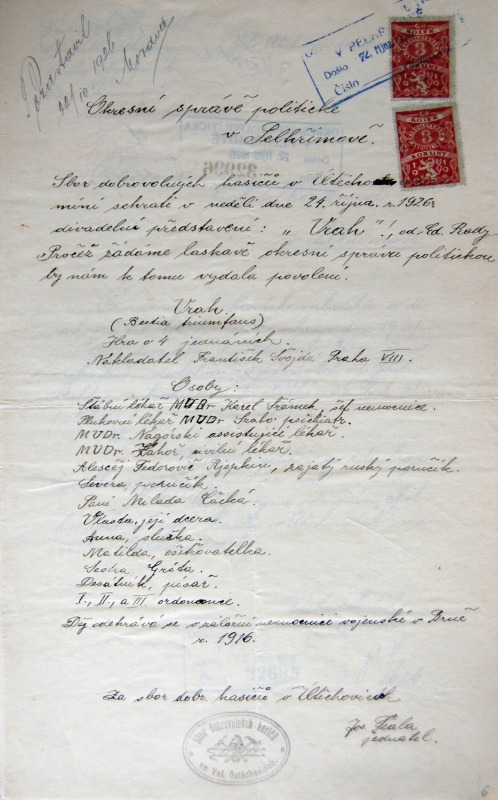 Pozastavil
22/10 1926
Morava
V PELHŘ
Došlo 22. ŘÍJNA
Číslo
KOLEK
3
KORUNY
KOLEK
3
KORUNY
Okresní správě politické
v Pelhřimově.
Sbor dobrovolných hasičů v
míní sehráti v neděli dne 24. října r. 1926
divadelní představení: „Vrah"! od Ed. Rady
Pročež žádáme laskavě okresní správu politickou
by nám k tomu vydala povolení.
Vrah.
(Bestia triumfans)
Hra o 4 jednáních.
Nakladatel František Švejda Praha VIII.
Osoby:
Štábní lékař MUDr Karel Šrámek, šef nemocnice.
Plukovní lékař MUDr Szabo psychiatr.
MUDr. Nagórski assistující lékař.
MUDr. Záhoř, civilní lékař.
Alexěj Fedorovič Rjepkin, zajatý ruský poručík.
Severa poručík.
Paní Milada Čácká.
Vlasta, její dcera.
Anna, služka.
Matilda, ošetřovatelka.
Sestra Gréta.
Desátník, písař.
I., II., a III. ordonance.
Děj odehrává se v záložní nemocnici vojenské v Brně
r. 1916.
Za sbor dobr. hasičů v Útěchovicích
Jos. Fiala
jednatel.
Sbor dobrovolných hasičů
6